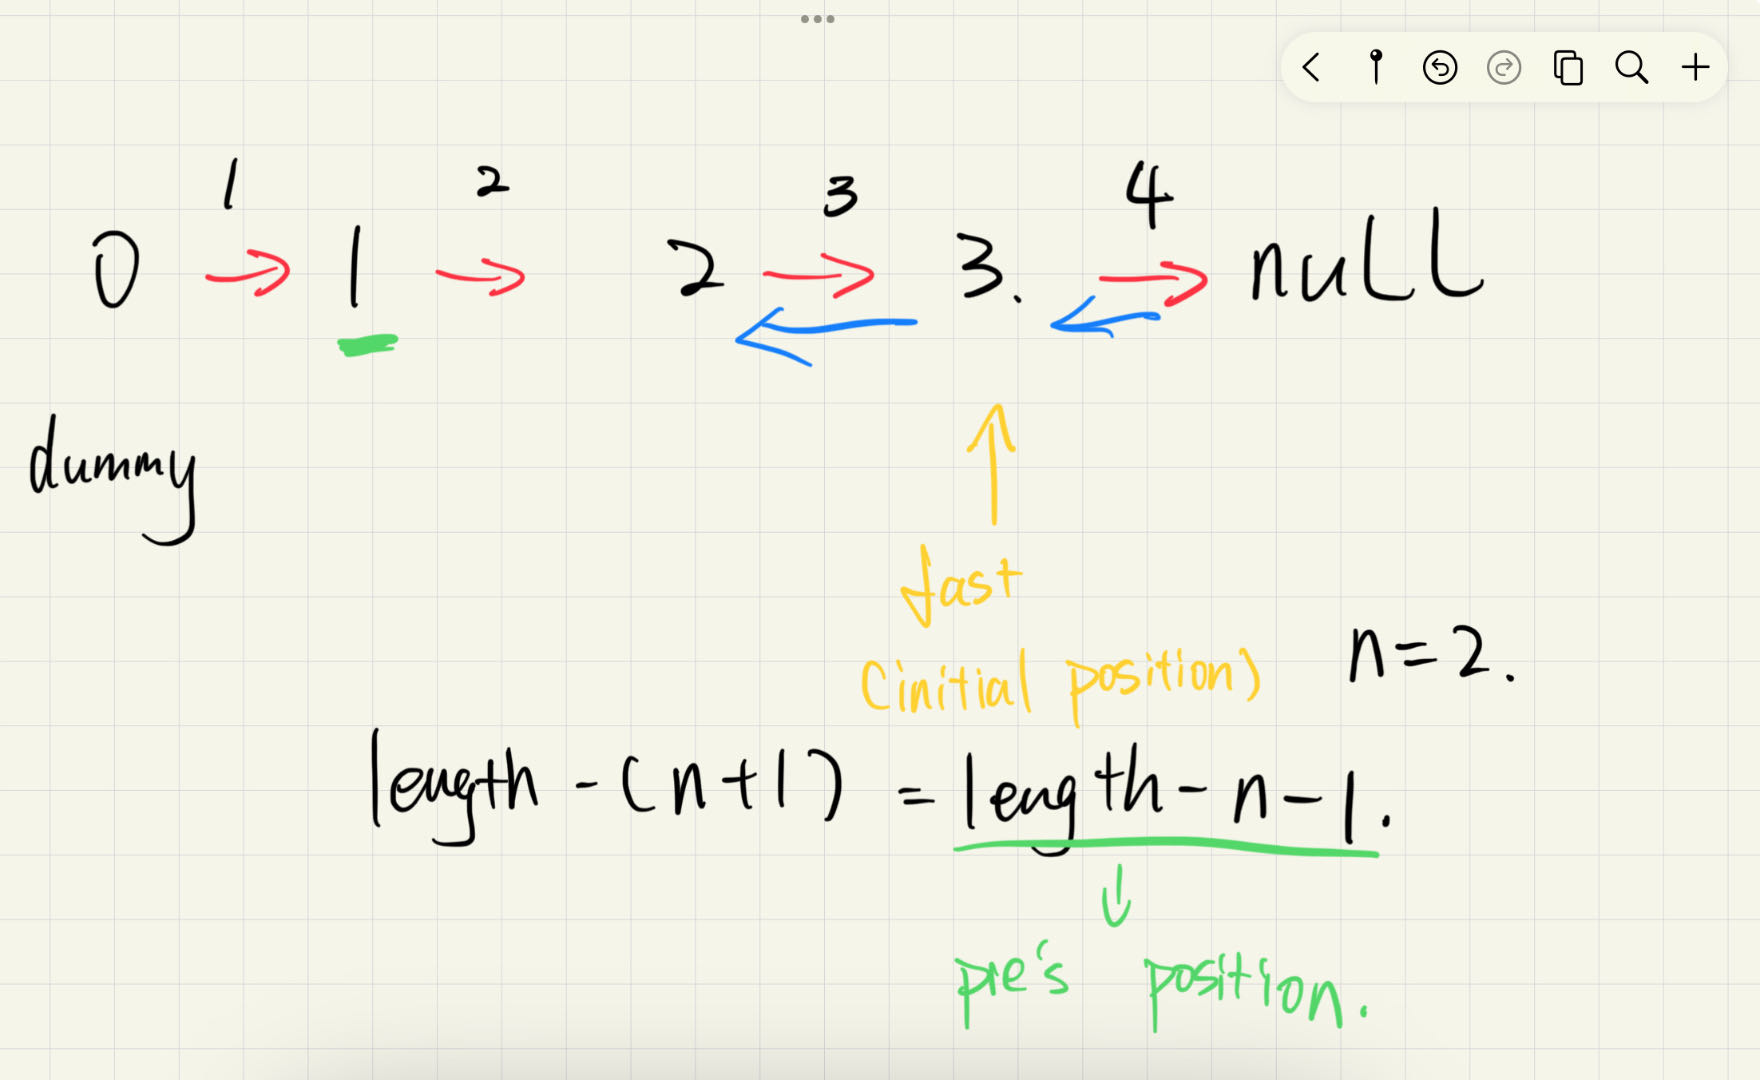 1 2 3 4
0 → 1 → 2 → 3. → null
dummy
fast
(initial position)
n=2.
length - (n+1) = length - n - 1.
pre's position.